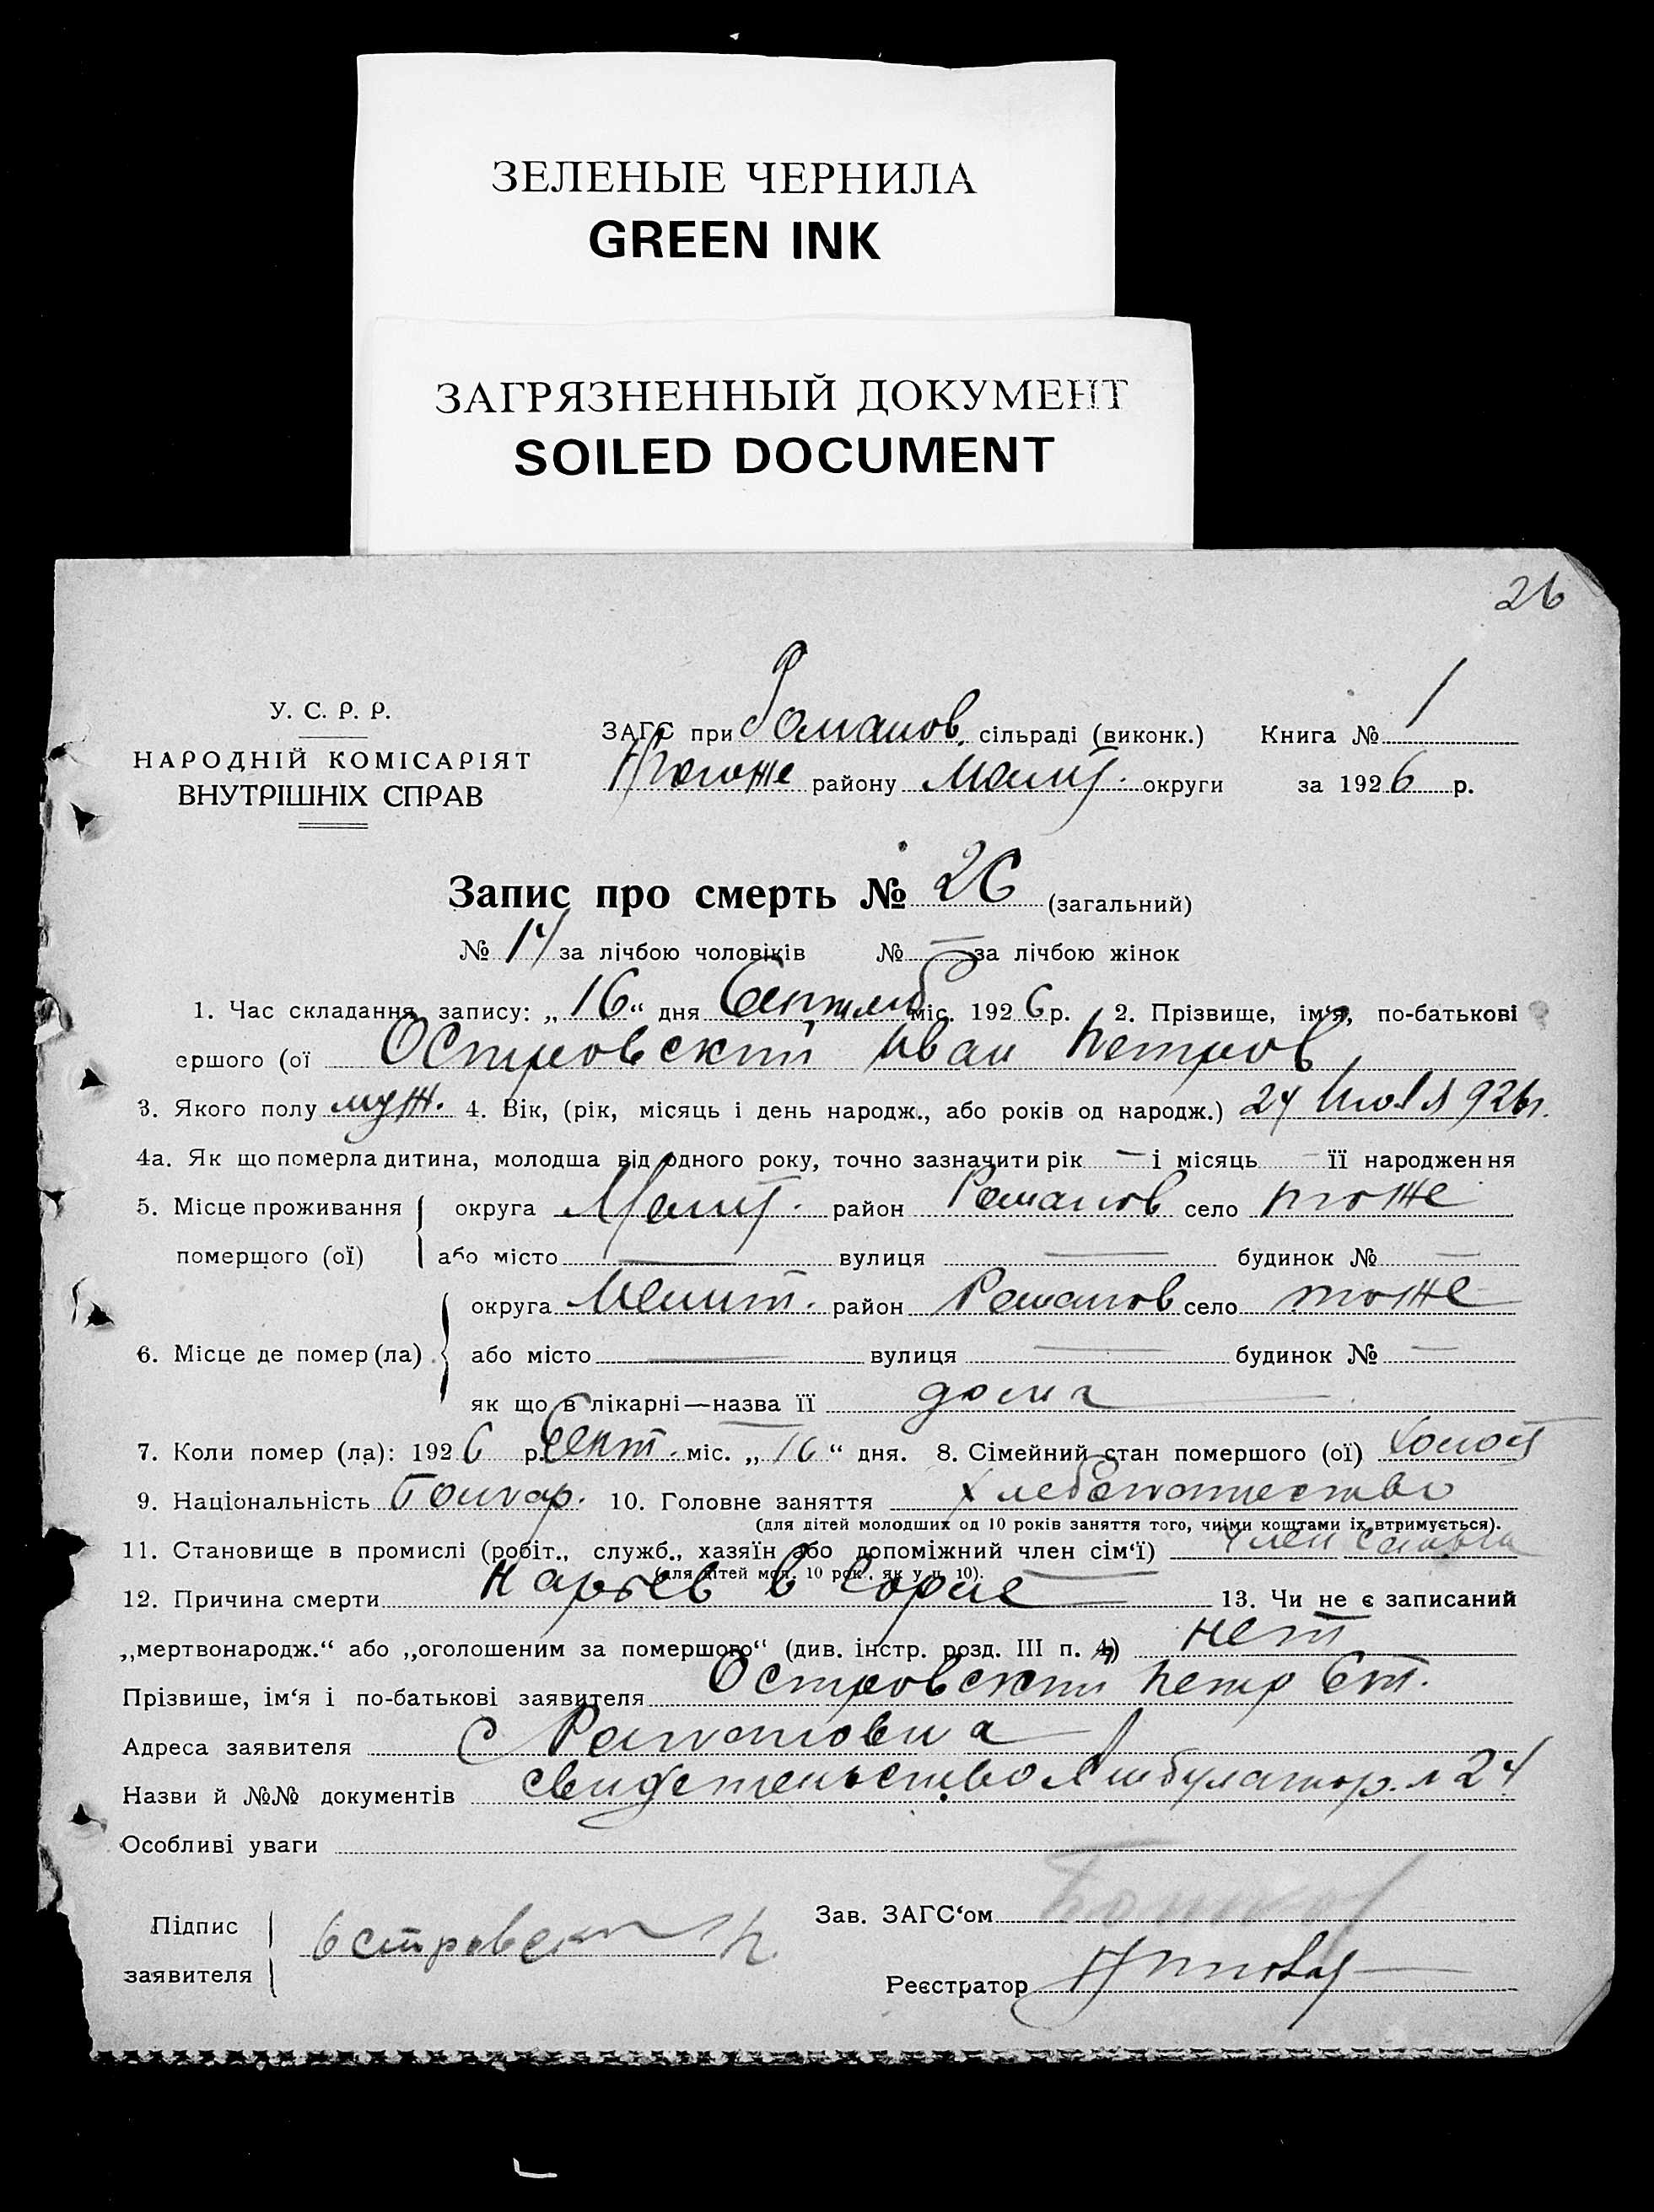 ЗЕЛЕНЫЕ ЧЕРНИЛА
GREEN INK
ЗАГРЯЗНЕННЫЙ ДОКУМЕНТ
SOILED DOCUMENT
26
У. С. Р. Р.
НАРОДНІЙ КОМІСАРІЯТ
ВНУТРІШНІХ СПРАВ
ЗАГС при Романов. сільраді (виконк.) Книга № 1
району Мелит. округи за 1926 р.
Запис про смерть № 26 (загальний)
№ 14 за лічбою чоловіків № — за лічбою жінок
1. Час складання запису: „16“ дня Сентяб міс. 1926 р. 2. Прізвище, ім‘я, по-батькові
ершого (ої Островский Иван Петров
3. Якого полу муж. 4. Вік, (рік, місяць і день народж., або років од народж.) 24 Июля 926 г.
4а. Як що померла дитина, молодша від одного року, точно зазначити рік — і місяць — її народження
5. Місце проживання округа Мелит. район Романов село тоже
помершого (ої) або місто — вулиця — будинок № —
округа Мелит. район Романов село тоже
6. Місце де помер (ла) або місто — вулиця — будинок № —
як що в лікарні—назва її дома
7. Коли помер (ла): 1926 р. Сент. міс. „16“ дня. 8. Сімейний стан помершого (ої) холост
9. Національність Болгар. 10. Головне заняття хлебопашество
(для дітей молодших од 10 років заняття того, чиїми коштами їх втримується).
11. Становище в промислі (робіт., служб., хазяїн або допоміжний член сім‘ї) член семьи
(для дітей мол. 10 рок., як у п. 10).
12. Причина смерти Нарыв в горле 13. Чи не є записаний
„мертвонародж.“ або „оголошеним за помершого“ (див. інстр. розд. III п. 4) нет
Прізвише, ім‘я і по-батькові заявителя Островский Петр Ст.
Адреса заявителя с Романовка
Назви й №№ документів свидетельство Амбулатор. № 24
Особливі уваги
Підпис
заявителя
Островски П.
Зав. ЗАГС‘ом
Реєстратор